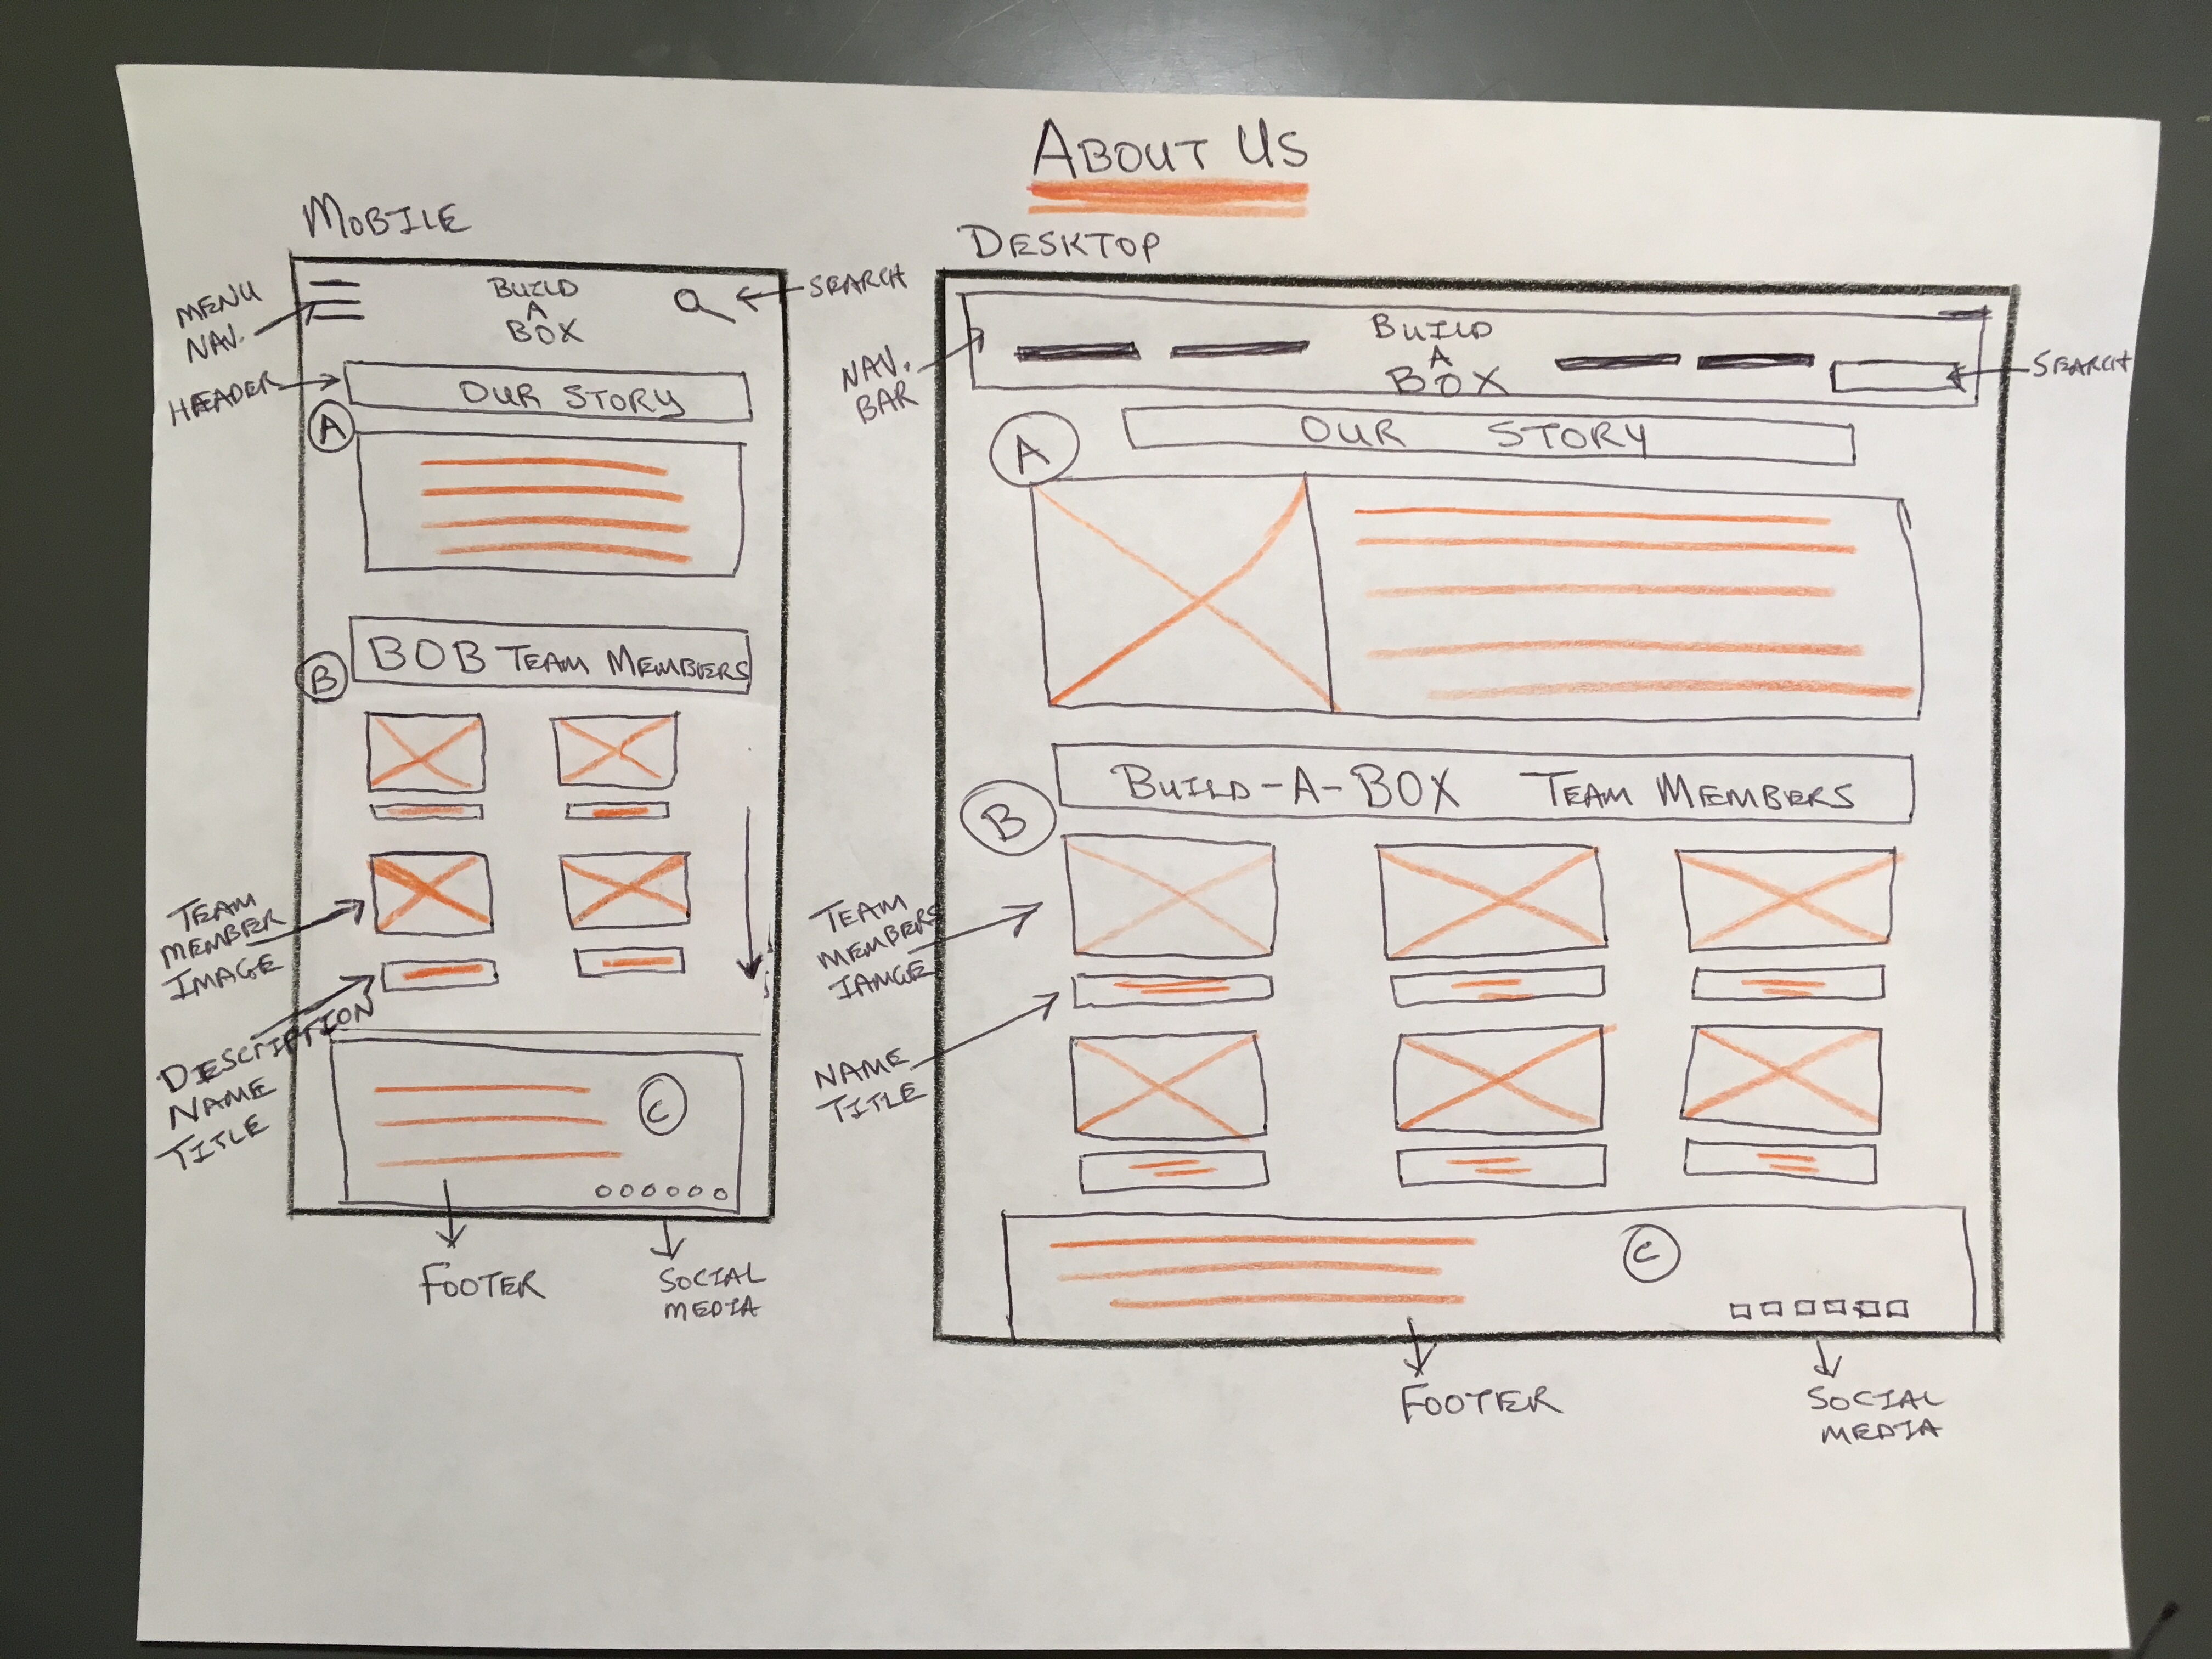 ABOUT US
MOBILE
MENU
NAV.
BUILD
A
BOX
SEARCH
HEADER
OUR STORY
A
BOB TEAM MEMBERS
B
TEAM
MEMBER
IMAGE
DESCRIPTION
NAME
TITLE
C
FOOTER
SOCIAL
MEDIA
DESKTOP
NAV.
BAR
BUILD
A
BOX
SEARCH
OUR STORY
A
BUILD-A-BOX TEAM MEMBERS
B
TEAM
MEMBERS
IAMGE
NAME
TITLE
C
FOOTER
SOCIAL
MEDIA